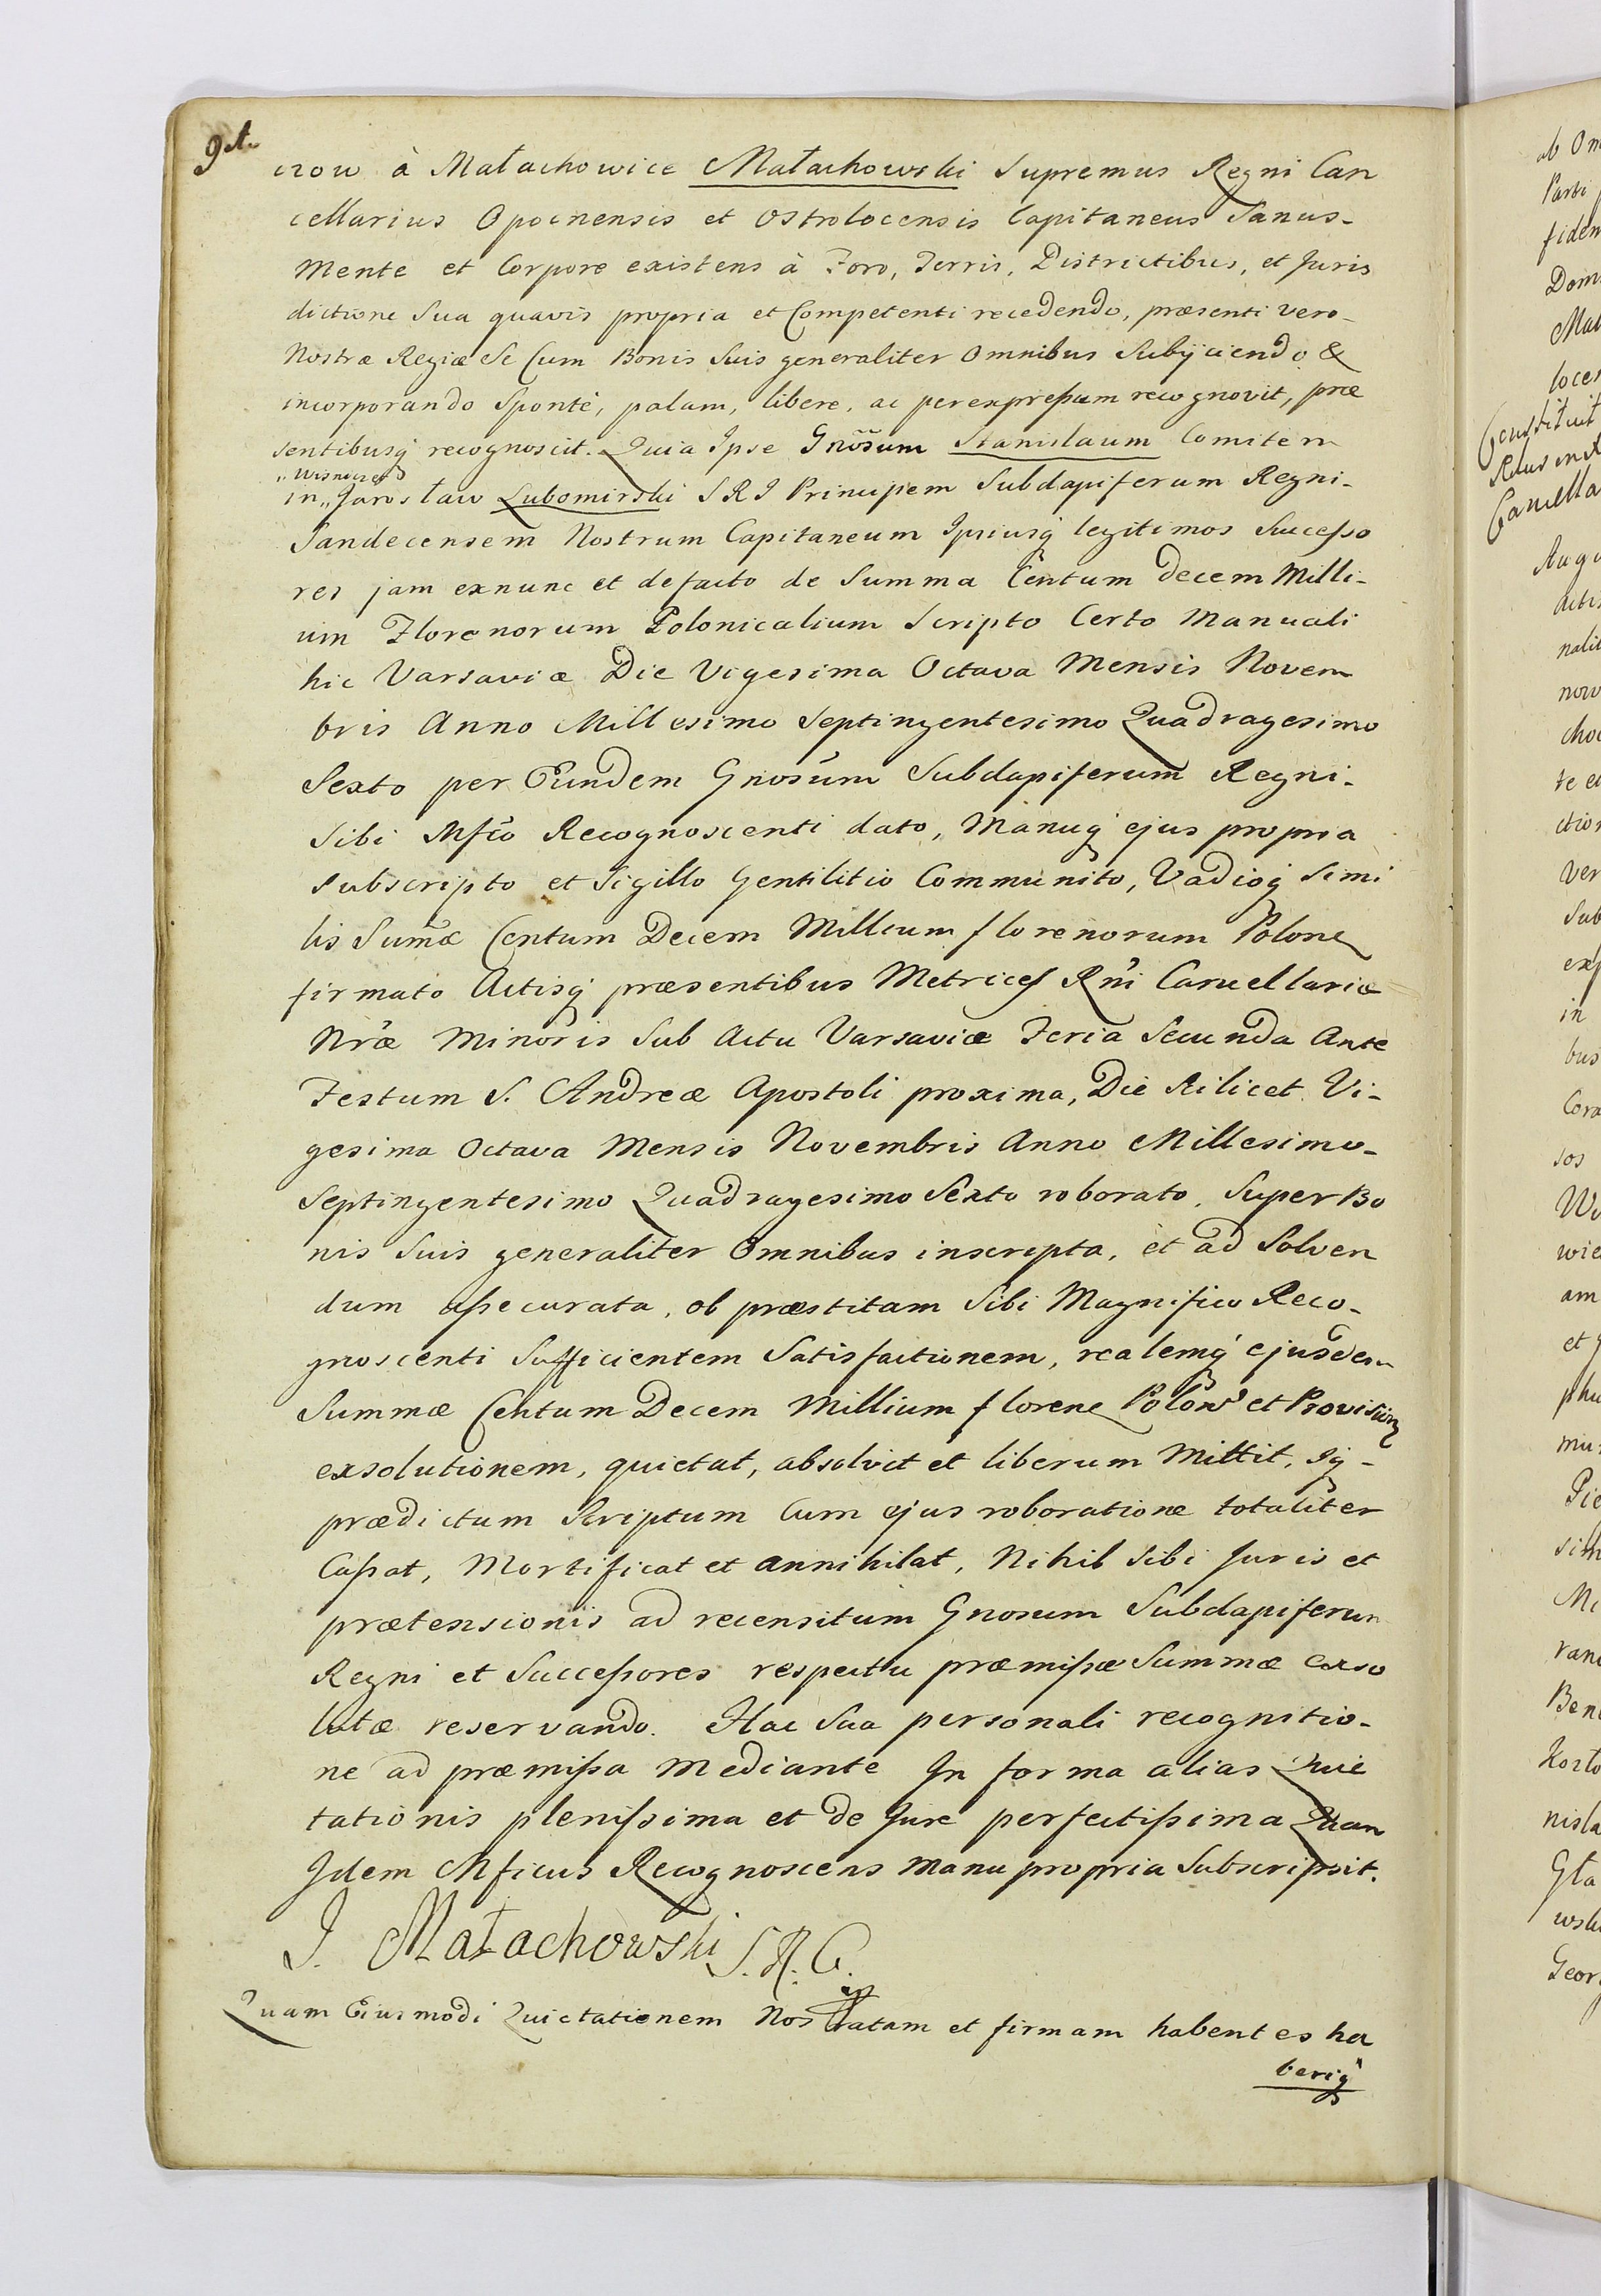 crow à Małachowice Małachowski Supremus Regni Can
cellarius Opocnensis et Ostrolocensis Capitaneus Sanus-
Mente et Corpore existens à Foro, Terris, Districtibus, et Juris
dictione Sua quavis propria et Competenti recedendo, præsenti vero-
Nostræ Regiæ Se Cum Bonis Suis generaliter Omnibus Subijciendo &
incorporando Sponte, palam, libere, ac per expressum recognovit, præ
sentibusq recognoscit. Quia Ipse Gnõsum Stanislaum Comitem
"Wisnicz et
in" Jarosław Lubomirski S R I Principem Subdapiferum Regni-
Sandecensem Nostrum Capitaneum Ipsiusq legitimos Successo
res jam exnunc et defacto de Summa Centum decem Milli-
um Florenorum Polonicalium Scripto Certo Manuali
hic Varsaviæ Die Vigesima Octava Mensis Novem
bris Anno Millesimo Septingentesimo Quadragesimo
Sexto per Eundem Gnosum Subdapiferum Regni-
Sibi Mfco Recognoscenti dato, Manuq ejus propria
subscripto et Sigillo Gentilitio Communito, Vadioq Simi
lis Sumæ Centum Decem Millium florenorum Polone
firmato Actisq præsentibus Metrices Rni Cancellariæ
Nræ Minoris Sub Actu Varsaviæ Feria Secunda Ante
Festum S. Andreæ Apostoli proxima, Die Silicet Vi-
gesima Octava Mensis Novembris Anno Millesimo-
Septingentesimo Quadragesimo Sexto roborato, Super Bo
nis Suis generaliter Omnibus inscripta, et ad Solven
dum assecurata, ob præstitam Sibi Magnifico Reco-
gnoscenti Sufficientem Satisfactionem, realemq ejusdem
Summæ Centum Decem Millium florene Polon et Provision
exsolutionem, quietat, absolvit et liberum Mittit, Iq-
prædictum Scriptum Cum ejus roboratione totaliter
Cassat, Mortificat et annihilat, Nihil Sibi Juris et
prætensionis ad recensitum Gnosum Subdapiferum
Regni et Successores respectu præmissæ Summæ exso
lutæ reservando. Hac Sua personali recognitio-
ne ad præmissa Mediante In forma alias Quie
tationis plenissima et de Jure perfectissima Quam
Idem Mficus Recognoscens Manu propria Subscripsit.
J. Małachowski S.R.C.
Quam Eiusmodi Quietationem Nos ratam et firmam habentes ha
beriq
ab Om
Parti
fidem
Dom
Mał
loce
Constituit
Cancella
Aug
Actis
nali
now
choc
te e
ction
Ver
Sub
exp
in
bus
Cora
sos
Wi
wie
am
et
phu
mu
Pie
sim
Mi
rand
Ben
Korto
nisla
Gła
wsk
Geor